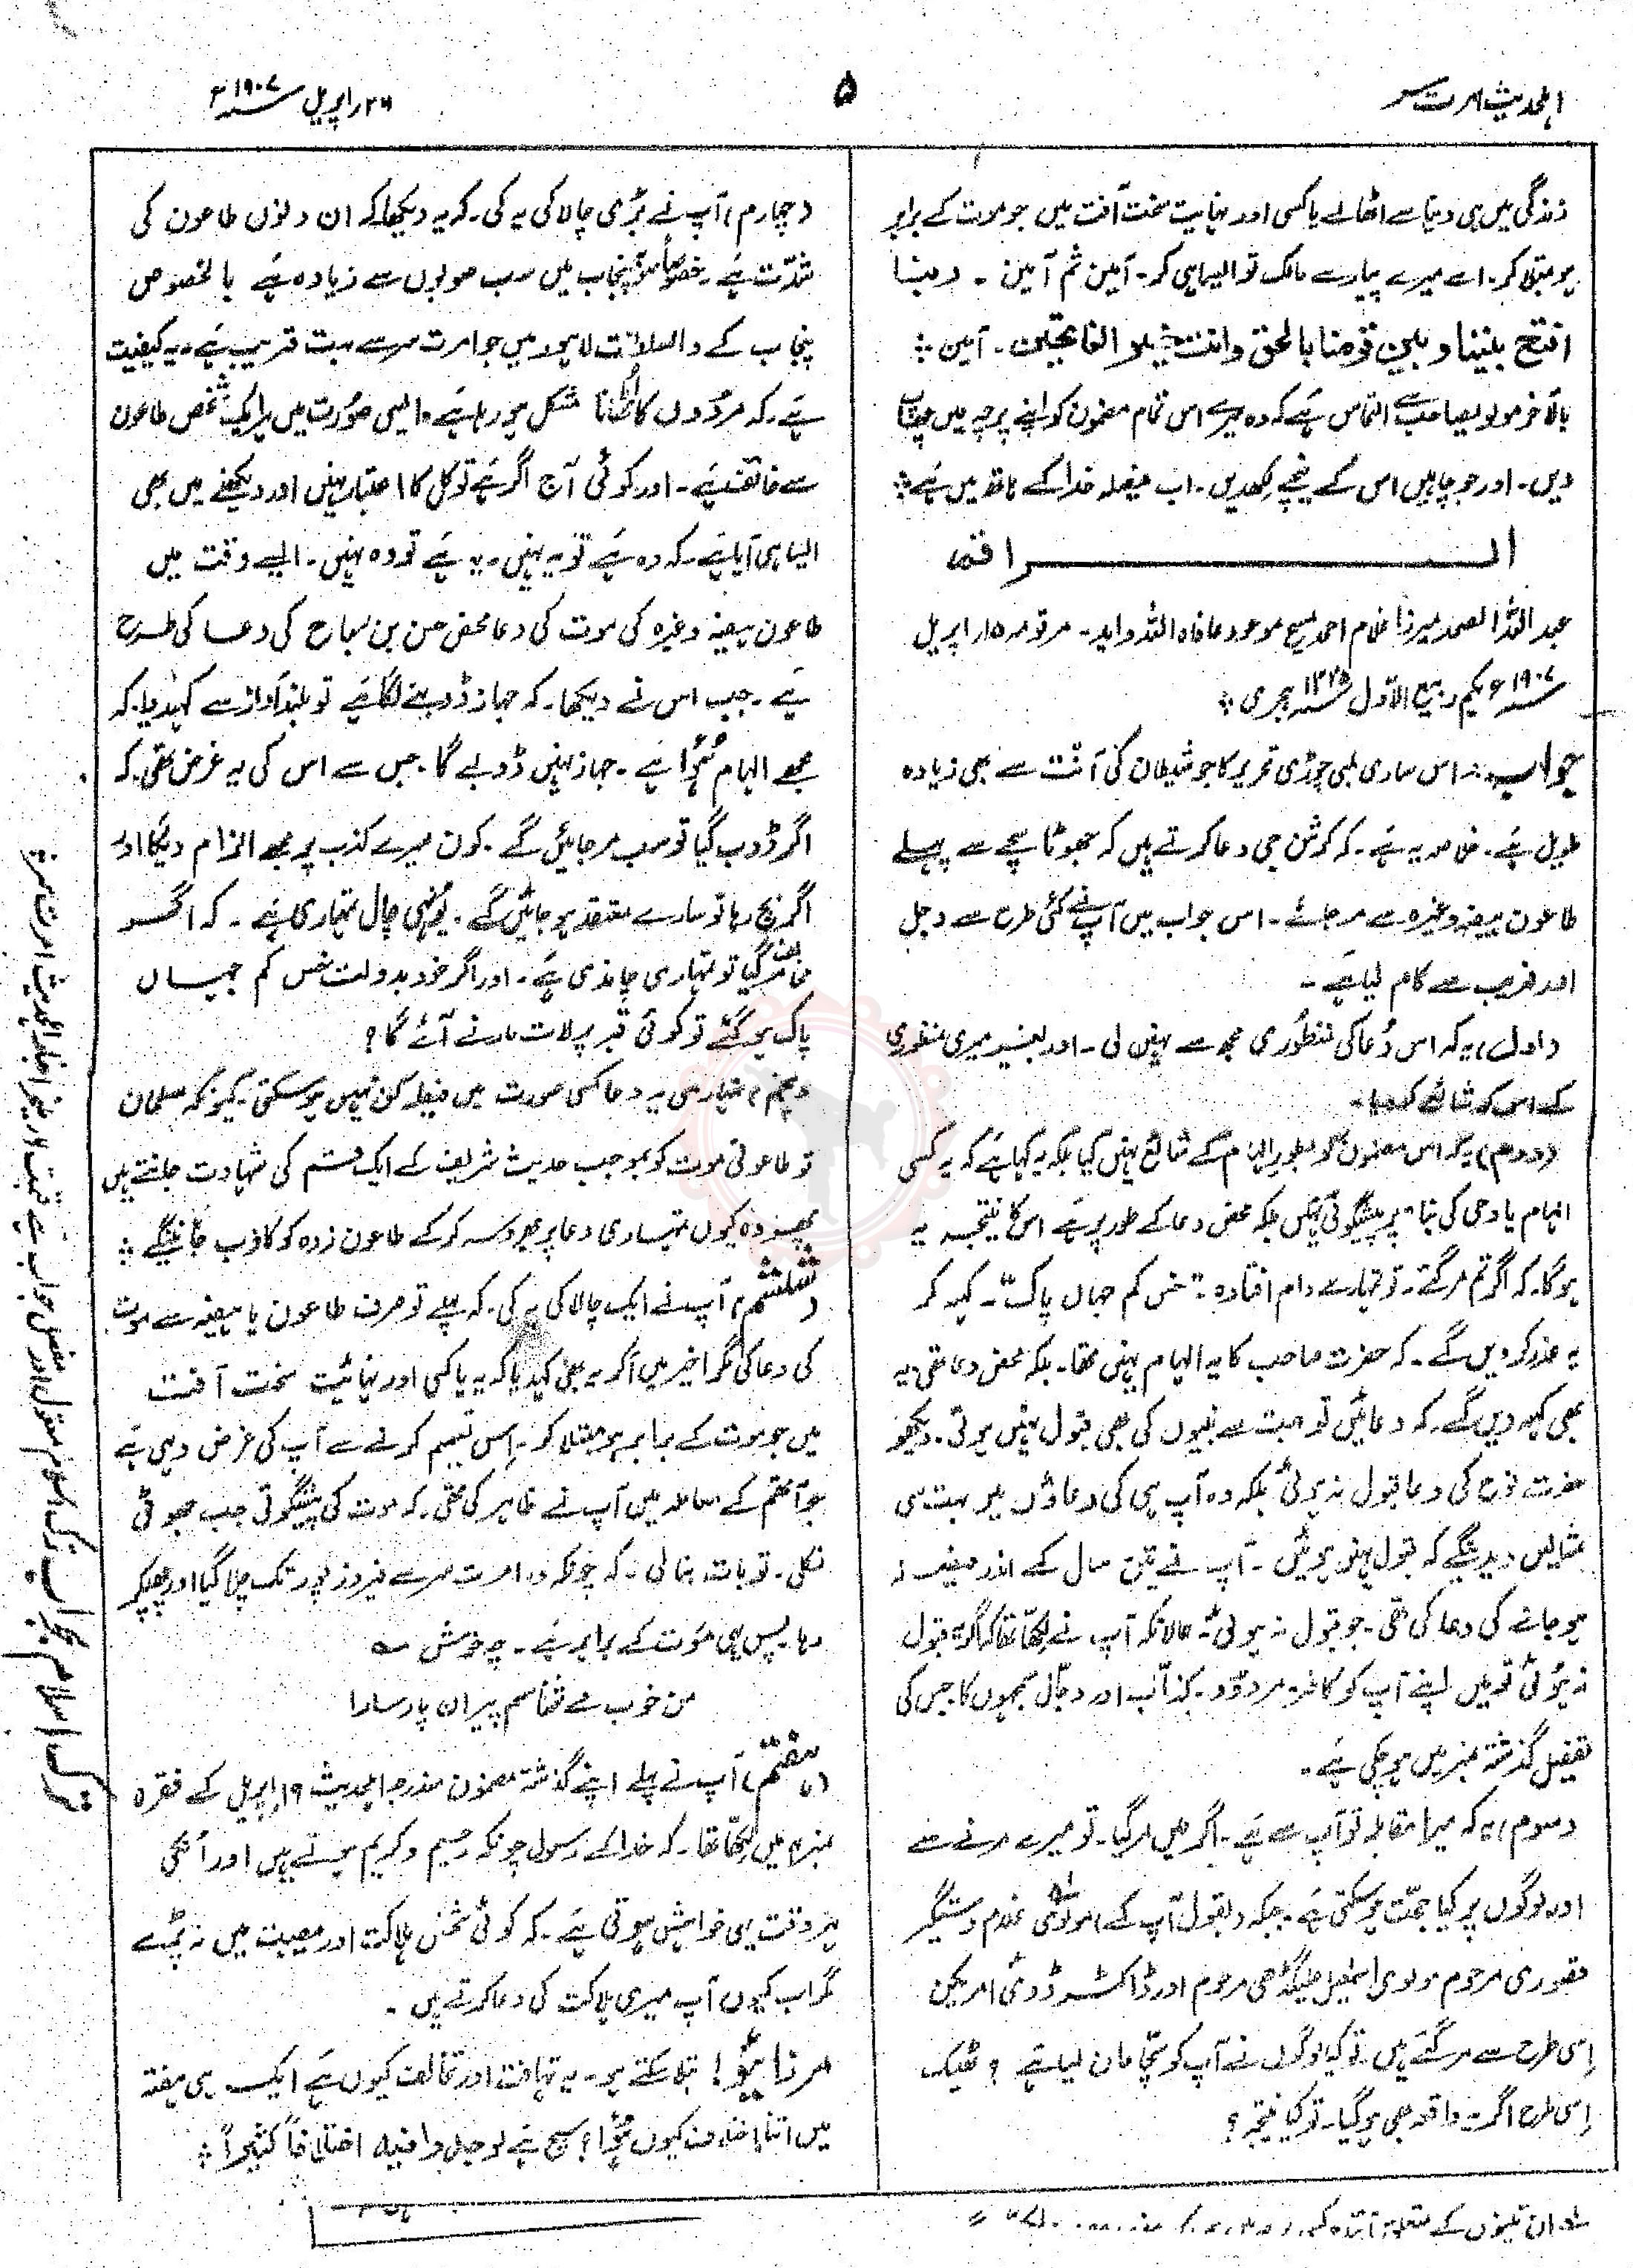 اہلحدیث امرتسر
۵
۲۶ اپریل سنہ ۱۹۰۷ء
زندگی میں ہی دنیا سے اٹھا لے یا کسی اور نہایت سخت آفت میں جو موت کے برابر
ہو مبتلا کر۔ اے میرے پیارے مالک تو ایسا ہی کر۔ آمین ثم آمین ۔ ربنا
افتح بیننا و بین قومنا بالحق وانت خیر الفاتحین۔ آمین ؞
بالآخر مولویصاحب سے التماس ہے کہ وہ میرے اس تمام مضمون کو اپنے پرچہ میں چھاپ
دیں۔ اور جو چاہیں اس کے نیچے لکھدیں۔ اب فیصلہ خدا کے ہاتھ میں ہے؞
الراقم
عبداللہ الصمد میرزا غلام احمد مسیح موعود عافاہ اللہ واید۔ مرقومہ ۱۵ اپریل
سنہ ۱۹۰۷ء یکم ربیع الاول سنہ ۱۳۲۵ ہجری ؞
جواب:۔ اس ساری لمبی چوڑی تحریر کا جو شیطان کی آنت سے بھی زیادہ
طویل ہے۔ خلاصہ یہ ہے۔ کہ کرشن جی دعا کرتے ہیں کہ جھوٹا سچے سے پہلے
طاعون ہیضہ وغیرہ سے مر جائے۔ اس جواب میں آپ نے کئی طرح سے دجل
اور فریب سے کام لیا ہے۔
(اول) یہ کہ اس دُعا کی منظوری مجھ سے نہیں لی۔ اور بغیر میری منظوری
کے اس کو شائع کردیا۔
(دوم) یہ کہ اس مضمون کو بطور الہام کے شائع نہیں کیا بلکہ یہ کہا ہے کہ یہ کسی
الہام یا وحی کی بنا پر پیشگوئی نہیں بلکہ محض دعا کے طور پر ہے اس کا نتیجہ یہ
ہوگا۔ کہ اگر تم مر گئے۔ تو تمہارے دام افتادہ "خس کم جہاں پاک"۔ کہہ کر
یہ عذر کر دیں گے۔ کہ حضرت صاحب کا یہ الہام نہیں تھا۔ بلکہ محض دعا تھی یہ
بھی کہہ دیں گے۔ کہ دعائیں تو بہت سے نبیوں کی بھی قبول نہیں ہوئی۔ دیکھو
حضرت نوح کی دعا قبول نہ ہوئی بلکہ وہ آپ ہی کی دعاؤں میں بہت سی
مثالیں دیدینگے کہ قبول نہیں ہوئیں ۔ آپ نے تین سال کے اندر فیصلہ
ہو جانے کی دعا کی تھی۔ جو قبول نہ ہوئی۔ حالانکہ آپ نے لکھا تھا کہ اگر یہ قبول
نہ ہوئی تو میں اپنے آپ کو کافر۔ مردود۔ کذاب اور دجال سمجھوں گا۔ جس کی
تفصیل گذشتہ نمبر میں ہو چکی ہے۔
(سوم) یہ کہ میرا مقابلہ تو آپ سے ہے۔ اگر میں مر گیا۔ تو میرے مرنے سے
اور لوگوں پر کیا حجت ہو سکتی ہے۔ جبکہ (بقول آپ کے) مولوی غلام دستگیر
قصوری مرحوم مولوی اسمٰعیل علیگڈھی مرحوم اور ڈاکٹر ڈوئی امریکن
اسی طرح سے مر گئے ہیں تو کیا لوگوں نے آپ کو سچا مان لیا ہے؟ ٹھیک
اسی طرح اگر یہ واقعہ بھی ہو گیا۔ تو کیا نتیجہ؟
ان تینوں کے متعلق
(چہارم) آپ نے بڑی چالاکی یہ کی۔ کہ یہ دیکھا کہ ان دنوں طاعون کی
شدّت ہے۔ خصوصاً پنجاب میں سب صوبوں سے زیادہ ہے بالخصوص
پنجاب کے دارالسلطنت لاہور میں جو امرتسر سے بہت قریب ہے۔ یہ کیفیت
ہے۔ کہ مردوں کا اُٹھانا مشکل ہو رہا ہے۔ ایسی صورت میں ہر ایک شخص طاعون
سے خائف ہے۔ اور کوئی آج اگر ہے تو کل کا اعتبار نہیں اور دیکھنے میں بھی
ایسا ہی آیا ہے۔ کہ وہ ہے تو یہ نہیں۔ یہ ہے تو وہ نہیں۔ ایسے وقت میں
طاعون ہیضہ وغیرہ کی موت کی دعا محض حسن بن صباح کی دعا کی طرح
ہے۔ جب اس نے دیکھا۔ کہ جہاز ڈوبنے لگا ہے تو بلند آواز سے کہہ دیا۔ کہ
مجھے الہام ہُوا ہے۔ جہاز نہیں ڈوبے گا۔ جس سے اس کی یہ غرض تھی۔ کہ
اگر ڈوب گیا تو سب مر جائیں گے۔ کون میرے کذب پر مجھے الزام دیگا اور
اگر بچ رہا تو سارے معتقد ہو جائیں گے۔ یونہی چال تمہاری ہے۔ کہ اگر
مخالف مر گیا تو تمہاری چاندی ہے۔ اور اگر خود بدولت خس کم جہاں
پاک ہو گئے تو کوئی قبر پر لات مارنے آئے گا؟
(پنجم) تمہاری یہ دعا کسی صورت میں فیصلہ کن نہیں ہو سکتی۔ کیونکہ مسلمان
تو طاعونی موت کو بموجب حدیث شریف کے ایک قسم کی شہادت جانتے ہیں
پھر وہ کیوں تمہاری دعا پر بھروسہ کرکے طاعون زدہ کو کاذب جانینگے ؞
(ششم) آپ نے ایک چالاکی یہ کی۔ کہ پہلے تو صرف طاعون یا ہیضہ سے موت
کی دعا کی مگر اخیر میں آ کر یہ بھی کہہ دیا کہ یا کسی اور نہائیت سخت آفت
میں جو موت کے برابر ہو مبتلا کر۔ اس تعمیم کرنے سے آپ کی غرض وہی ہے
جو آتھم کے معاملہ میں آپ نے ظاہر کی تھی۔ کہ موت کی پیشگوئی جب جھوٹی
نکلی۔ تو بات بنا لی۔ کہ چونکہ وہ امرتسر سے فیروزپور تک چلا گیا اور چھپکر
رہا۔ پس یہی موت کے برابر ہے۔ چہ خوش ؎
من خوب مے شناسم پیران پارسارا
(ہفتم) آپ نے پہلے اپنے گذشتہ مضمون مندرجہ اہلحدیث ۱۹ اپریل کے فقرہ
نمبر میں لکھا تھا۔ کہ خدا کے رسول چونکہ رحیم و کریم ہوتے ہیں اور اُنکی
ہر وقت یہی خواہش ہوتی ہے۔ کہ کوئی شخص ہلاکت اور مصیبت میں نہ پڑے
مگر اب کیوں آپ میری ہلاکت کی دعا کرتے ہیں۔
مرزائیو! بتلا سکتے ہو۔ یہ تہافت اور تخالف کیوں ہے ایک ہی ہفتہ
میں اتنا اختلاف کیوں ہُوا؟ سچ ہے لوجدوا فیہ اختلافاً کثیراً ؞
ترک اسلام بجواب ترک اسلام معقول اور مفصل جواب